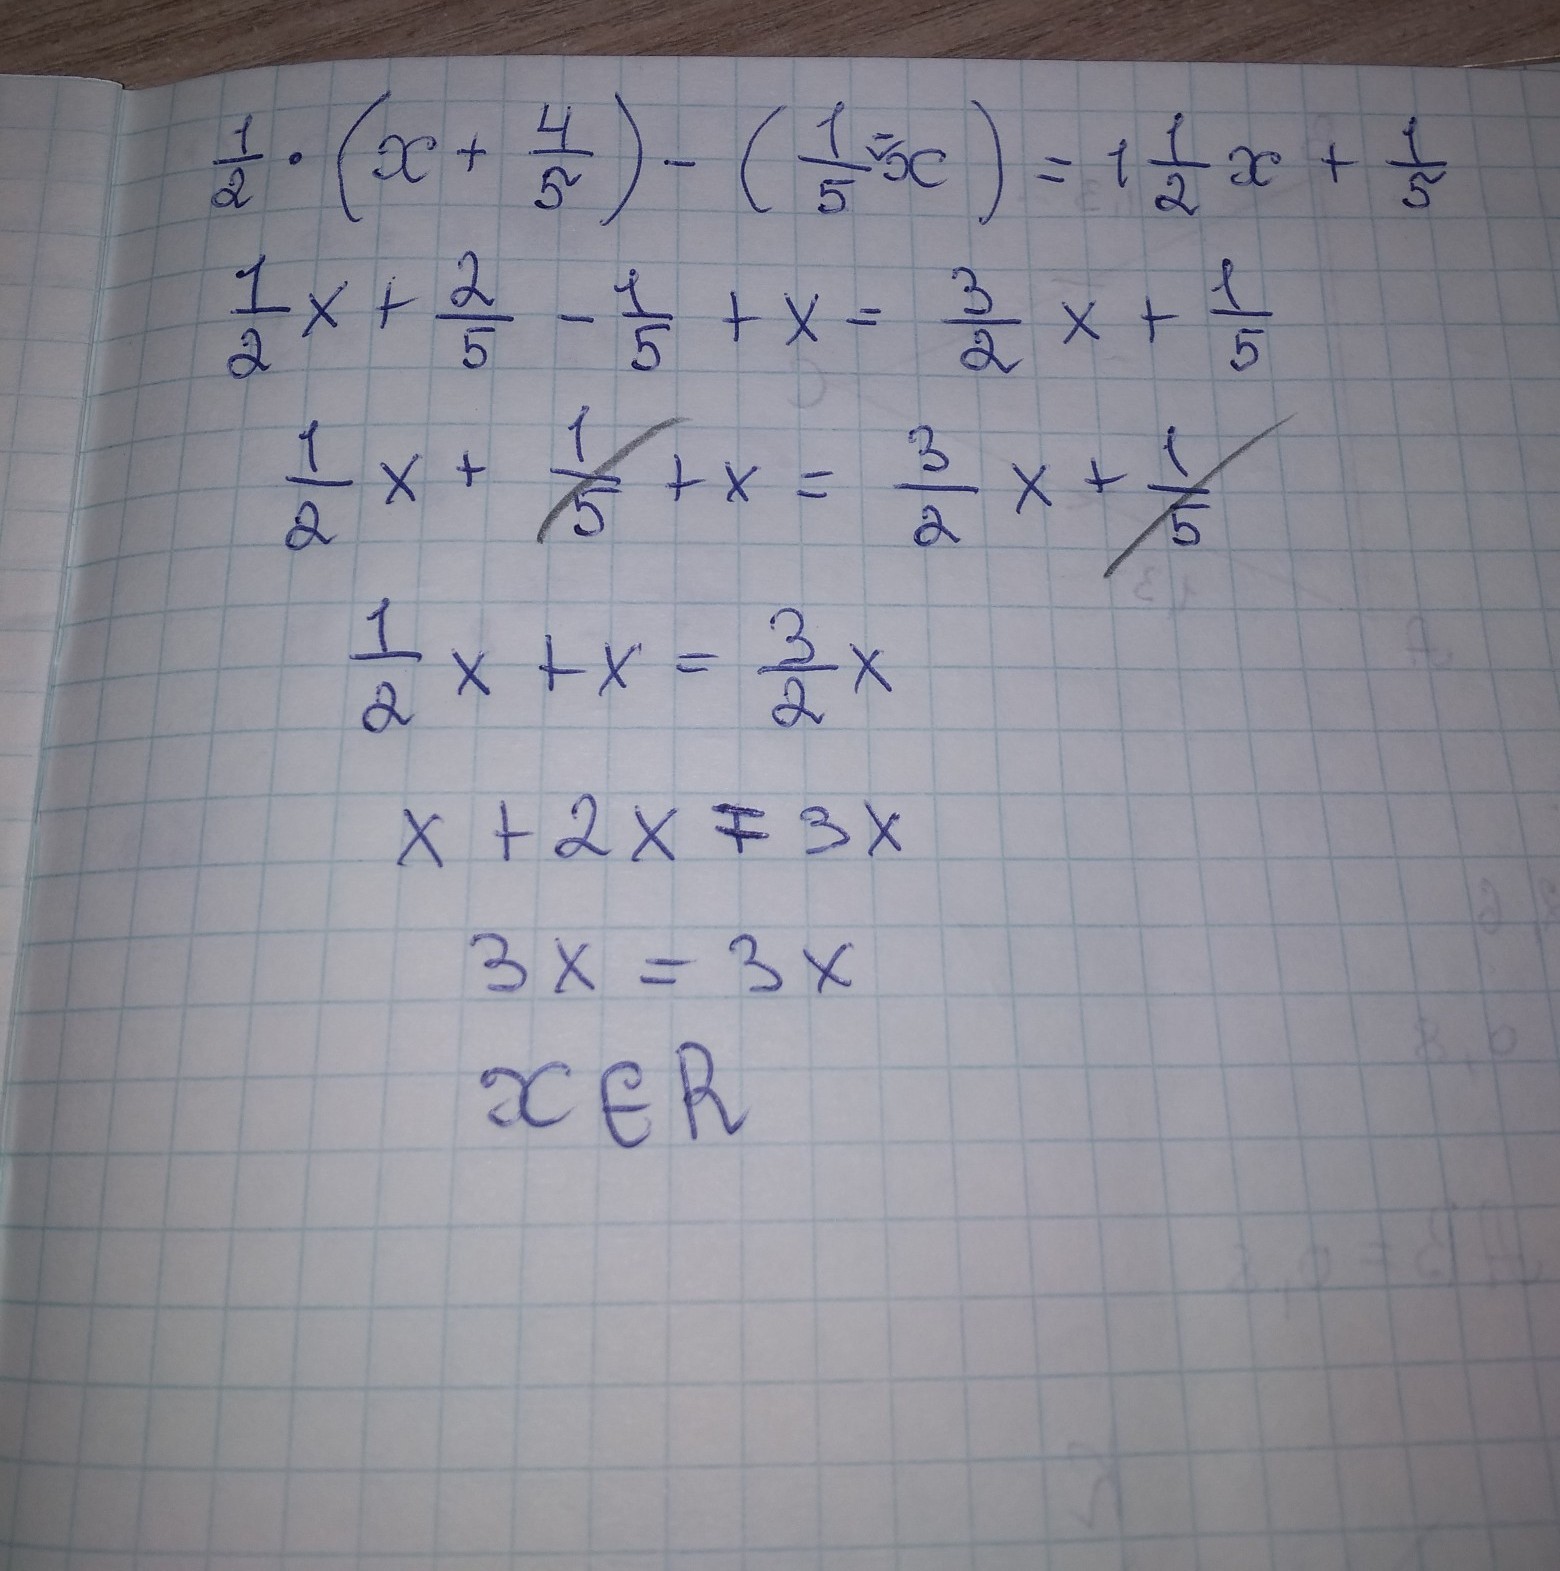 1/2 · (x + 4/5) - (1/5 - x) = 1 1/2 x + 1/5
1/2 x + 2/5 - 1/5 + x = 3/2 x + 1/5
1/2 x + 1/5 + x = 3/2 x + 1/5
1/2 x + x = 3/2 x
x + 2x = 3x
3x = 3x
x ∈ R